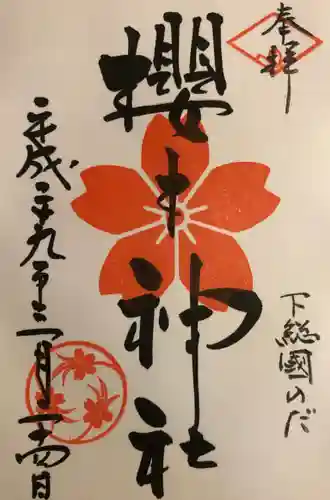 奉拝
下総國のだ
櫻木神社
平成二十九年二月二十四日